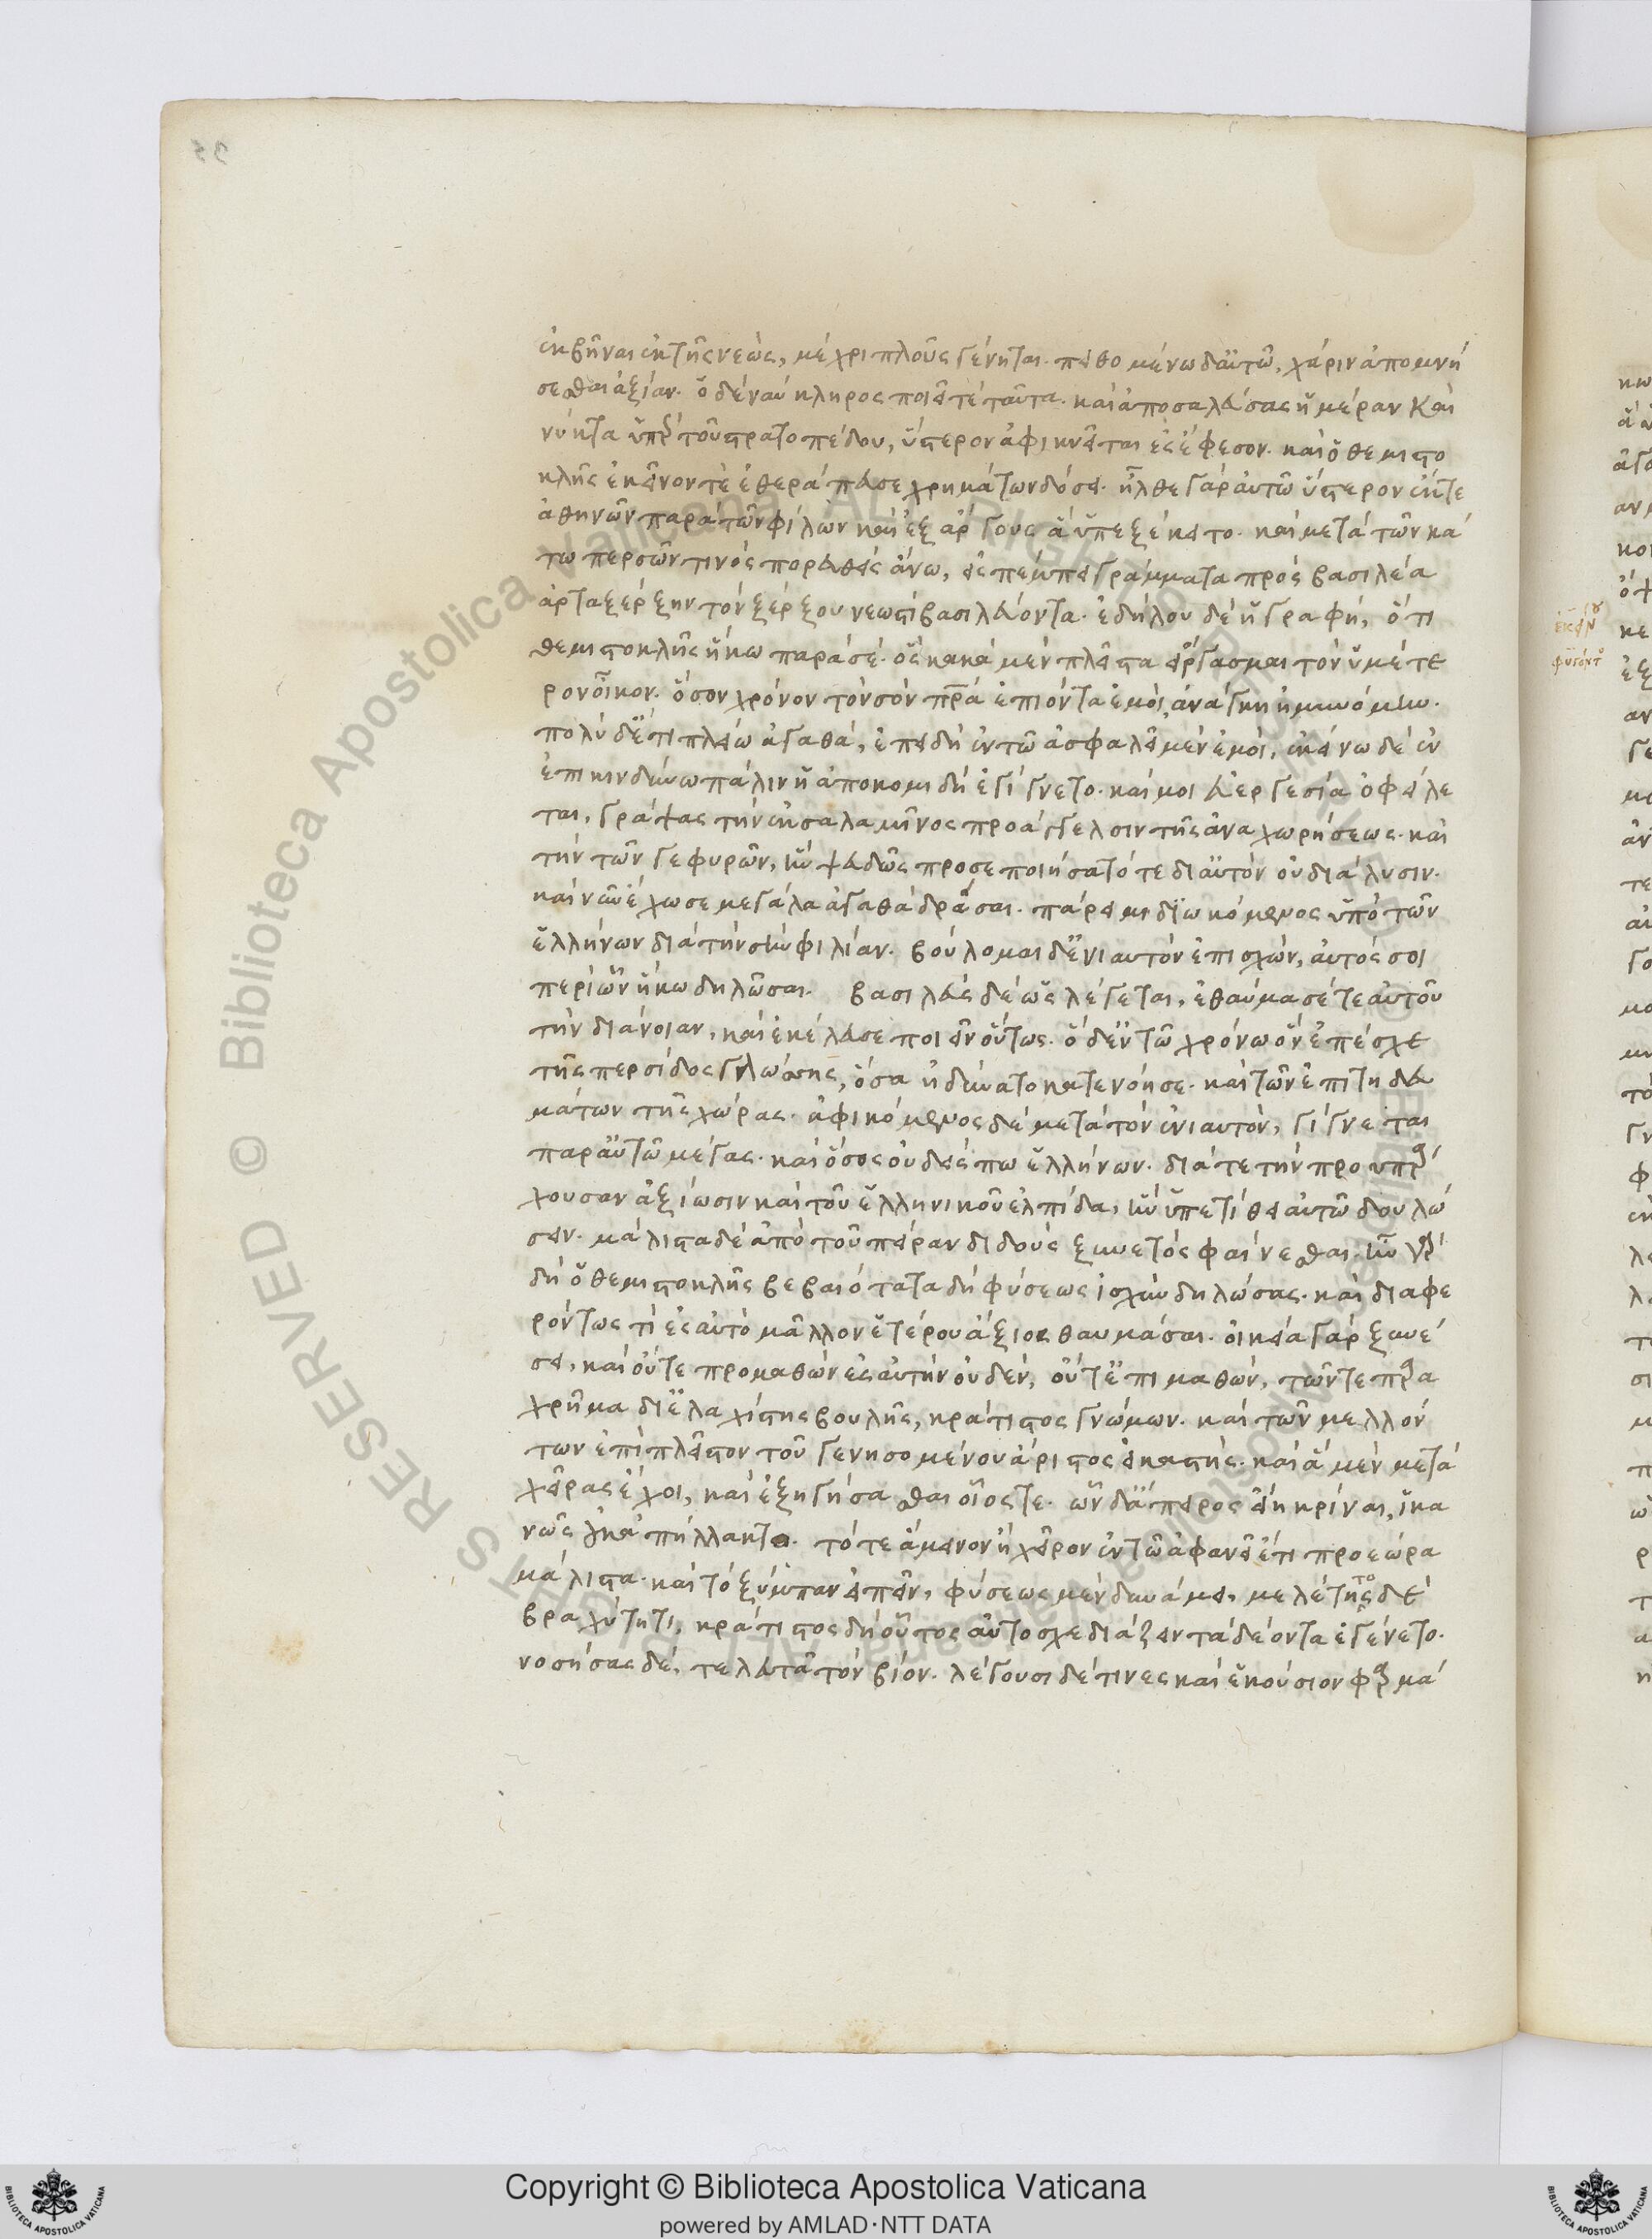 ἐκβῆναι ἐκ τῆς νεὼς, μέχρι πλοῦς γένηται. πειθομένω δ' αὐτῶ, χάριν ἀπομνή
σεσθαι ἀξίαν. ὁ δὲ ναύκληρος ποιεῖ τὲ ταῦτα. καὶ ἀποσαλεύσας ἡμέραν καὶ
νύκτα ὑπὲρ τοῦ στρατοπέδου, ὕστερον ἀφικνεῖται ἐς ἔφεσον. καὶ ὁ θεμιστο
κλῆς ἐκεῖνόν τὲ ἐθεράπευσε χρημάτων δόσει. ἦλθε γὰρ αὐτῶ ὕστερον ἔκ τε
ἀθηνῶν παρὰ τῶν φίλων καὶ ἐξ ἄργους ἃ ὑπεξέκειτο. καὶ μετὰ τῶν κά
τω περσῶν τινὸς πορευθεὶς ἄνω, ἐσπέμπει γράμματα πρὸς βασιλέα
ἀρταξέρξην τὸν ξέρξου νεωστὶ βασιλεύοντα. ἐδήλου δὲ ἡ γραφὴ, ὅτι
θεμιστοκλῆς ἥκω παρὰ σέ. ὃς κακὰ μὲν πλεῖστα εἴργασμαι τὸν ὑμέτε
ρον οἶκον. ὅσον χρόνον τὸν σὸν πρα ἐπιόντα ἐμοὶ, ἀνάγκη ἠμυνόμην.
πολὺ δ' ἔτι πλείω ἀγαθὰ, ἐπειδὴ ἐν τῶ ἀσφαλεῖ μὲν ἐμοὶ, ἐκείνω δὲ ἐν
ἐπικινδύνω πάλιν ἡ ἀποκομιδὴ ἐγίγνετο. καί μοι εὐεργεσία ὀφείλε
ται, γράψας τὴν ἐκ σαλαμῖνος προάγγελσιν τῆς ἀναχωρήσεως. καὶ
τὴν τῶν γεφυρῶν, ἣν ψευδῶς προσεποιήσατο τότε δι' αὐτὸν οὐ διάλυσιν.
καὶ νῦν ἔχω σε μεγάλα ἀγαθὰ δρᾶσαι. πάρειμι διωκόμενος ὑπὸ τῶν
ἑλλήνων διὰ τὴν σὴν φιλίαν. βούλομαι δ' ἐνιαυτὸν ἐπισχὼν, αὐτός σοι
περὶ ὧν ἥκω δηλῶσαι. βασιλεὺς δὲ ὡς λέγεται, ἐθαύμασέ τε αὐτοῦ
τὴν διάνοιαν, καὶ ἐκέλευσε ποιεῖν οὕτως. ὁ δ' ἐν τῶ χρόνω ὃν ἐπέσχε
τῆς περσίδος γλώσσης, ὅσα ἠδύνατο κατενόησε. καὶ τῶν ἐπιτηδευ
μάτων τῆς χώρας. ἀφικόμενος δὲ μετὰ τὸν ἐνιαυτὸν, γίγνεται
παρ' αὐτῶ μέγας. καὶ ὅσος οὐδείς πω ἑλλήνων. διά τε τὴν προυπάρ
χουσαν ἀξίωσιν καὶ τοῦ ἑλληνικοῦ ἐλπίδα, ἣν ὑπετίθει αὐτῶ δουλώ
σειν. μάλιστα δὲ ἀπὸ τοῦ πεῖραν διδοὺς ξυνετὸς φαίνεσθαι. ἦν γὰρ
δὴ ὁ θεμιστοκλῆς βεβαιότατα δὴ φύσεως ἰσχὺν δηλώσας. καὶ διαφε
ρόντως τὶ ἐς αὐτὸ μᾶλλον ἑτέρου ἄξιος θαυμάσαι. οἰκεία γὰρ ξυνέ
σει, καὶ οὔτε προμαθὼν ἐς αὐτὴν οὐδὲν, οὔτ' ἐπιμαθὼν, τῶν τε παρα
χρῆμα δι' ἐλαχίστης βουλῆς, κράτιστος γνώμων. καὶ τῶν μελλόν
των ἐπὶ πλεῖστον τοῦ γενησομένου ἄριστος εἰκαστής. καὶ ἃ μὲν μετὰ
χεῖρας ἔχοι, καὶ ἐξηγήσασθαι οἷός τε. ὧν δ' ἄπειρος εἴη κρῖναι, ἱκα
νῶς οὐκ ἀπήλλακτο. τό τε ἄμεινον ἢ χεῖρον ἐν τῶ ἀφανεῖ ἔτι προεώρα
μάλιστα. καὶ τὸ ξύμπαν εἰπεῖν, φύσεως μὲν δυνάμει, μελέτης δὲ
βραχύτητι, κράτιστος δὴ οὗτος αὐτοσχεδιάζειν τὰ δέοντα ἐγένετο.
νοσήσας δὲ, τελευτᾶ τὸν βίον. λέγουσι δέ τινες καὶ ἑκούσιον φαρμά
Copyright © Biblioteca Apostolica Vaticana
powered by AMLAD·NTT DATA